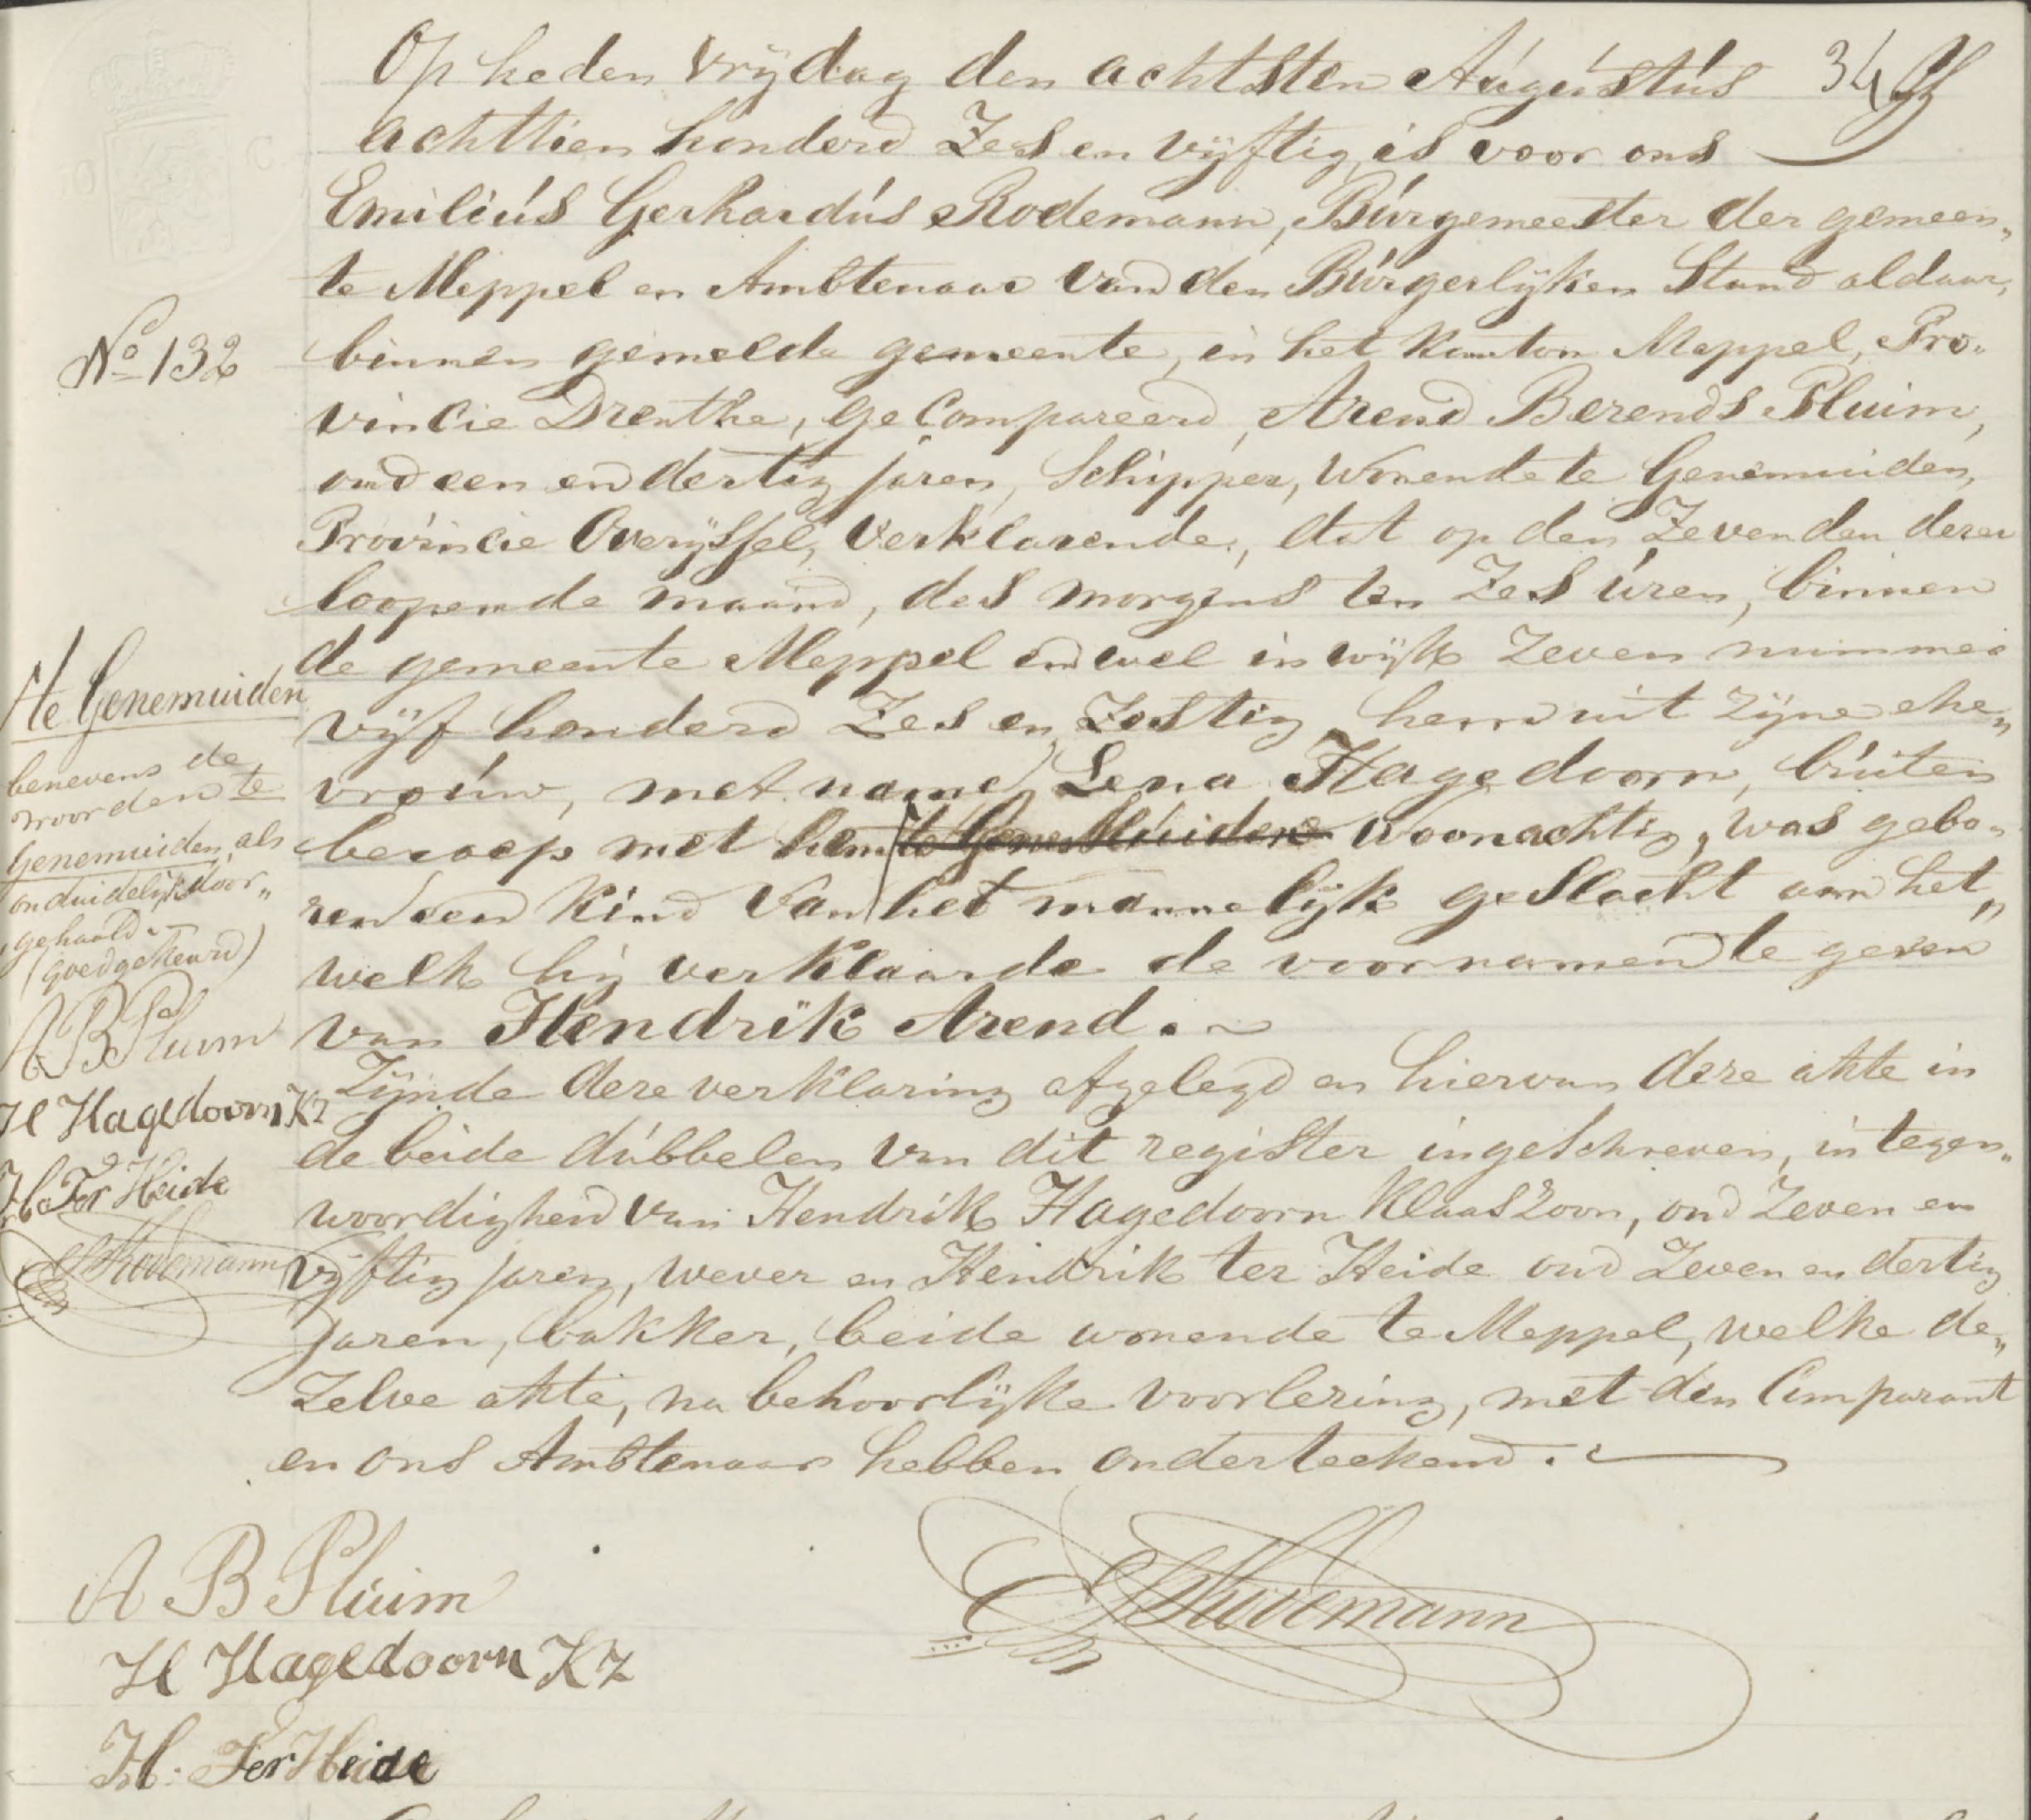 Op heden Vrijdag den achtsten Augustus 34
achttien honderd Zes en vijftig, is voor ons
Emilius Gerhardus Rodemann, Burgemeester der gemeen„
te Meppel en Ambtenaar van den Burgerlijken Stand aldaar,
No 132
binnen gemelde gemeente, in het Kanton Meppel, Pro„
vincie Drenthe, geCompareerd, Arend Berends Pluim,
oud een en dertig jaren, Schipper, Wonende te Genemuiden,
Provincie Overijssel, Verklarende, dat op den Zevenden dezer
loopende maand, des morgens ten Zes uren, binnen
de gemeente Meppel en wel in wijk Zeven nummer
vijf honderd Zes en Zestig hem uit zijne ehe„
vrouw, met name Lena Hagedoorn, buiten
beroep met hem te Genemuiden woonachtig, was gebo„
ren een Kind Van het mannelijk geslacht aan het„
welk hij verklaarde de voornamen te geven
van Hendrik Arend.
Zijnde deze verklaring afgelegd en hiervan deze akte in
de beide dubbelen van dit register ingeschreven, in tegen„
woordigheid van Hendrik Hagedoorn Klaaszoon, oud Zeven en
vijftig jaren, wever en Hendrik ter Heide oud Zeven en dertig
jaren, bakker, beide wonende te Meppel, welke de„
Zelve akte, na behoorlijke voorlezing, met den Comparant
en ons Ambtenaar hebben onderteekend.
te Genemuiden
benevens de
woorden te
Genemuiden, als
onduidelijk door„
gehaald
(goedgekeurd)
A B Pluim
H Hagedoorn Kz
H. Ter Heide
EGRodemann
A B Pluim
EGRodemann
H Hagedoorn Kz
H. Ter Heide